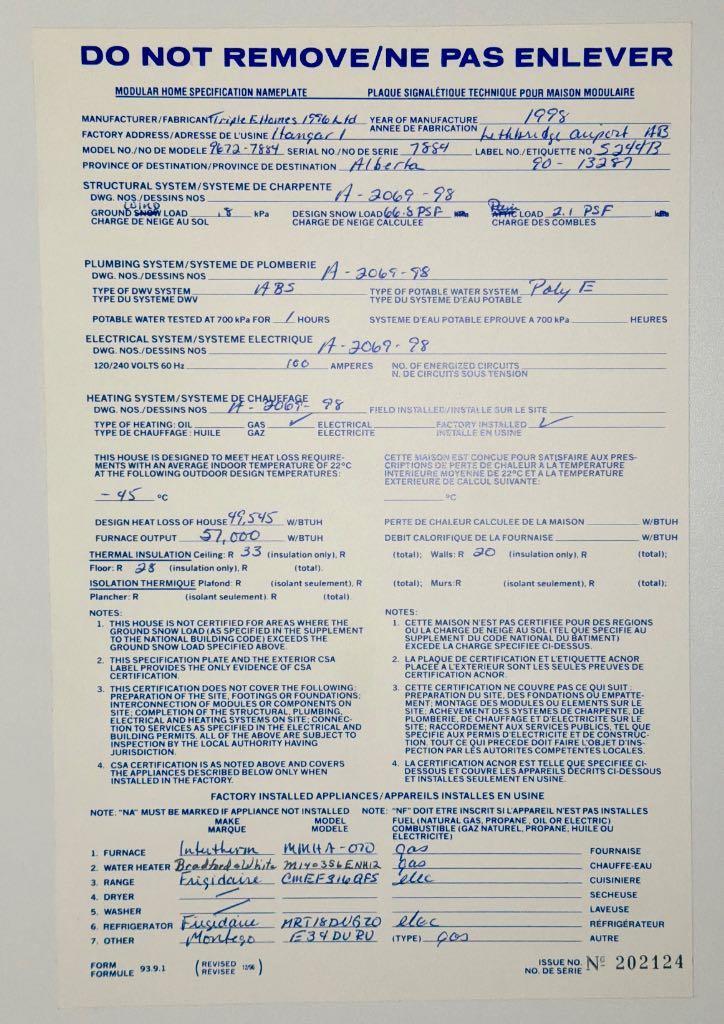 DO NOT REMOVE/NE PAS ENLEVER
MODULAR HOME SPECIFICATION NAMEPLATE PLAQUE SIGNALÉTIQUE TECHNIQUE POUR MAISON MODULAIRE
MANUFACTURER/FABRICANT Triple E Homes 1996 Ltd YEAR OF MANUFACTURE 1998
ANNEE DE FABRICATION
FACTORY ADDRESS/ADRESSE DE L'USINE Hangar 1 Lethbridge airport AB
MODEL NO./NO DE MODELE 9672-7884 SERIAL NO./NO DE SERIE 7884 LABEL NO./ETIQUETTE NO 5244B
PROVINCE OF DESTINATION/PROVINCE DE DESTINATION Alberta 90-13287
STRUCTURAL SYSTEM/SYSTEME DE CHARPENTE
DWG. NOS./DESSINS NOS A-2069-98
Wind Rain
GROUND SNOW LOAD .8 kPa DESIGN SNOW LOAD 66.8 PSF kPa ATTIC LOAD 2.1 PSF kPa
CHARGE DE NEIGE AU SOL CHARGE DE NEIGE CALCULEE CHARGE DES COMBLES
PLUMBING SYSTEM/SYSTEME DE PLOMBERIE
DWG. NOS./DESSINS NOS A-2069-98
TYPE OF DWV SYSTEM ABS TYPE OF POTABLE WATER SYSTEM Poly E
TYPE DU SYSTEME DWV TYPE DU SYSTEME D'EAU POTABLE
POTABLE WATER TESTED AT 700 kPa FOR 1 HOURS SYSTEME D'EAU POTABLE EPROUVE A 700 kPa HEURES
ELECTRICAL SYSTEM/SYSTEME ELECTRIQUE
DWG. NOS./DESSINS NOS A-2069-98
120/240 VOLTS 60 Hz 100 AMPERES NO. OF ENERGIZED CIRCUITS
N. DE CIRCUITS SOUS TENSION
HEATING SYSTEM/SYSTEME DE CHAUFFAGE
DWG. NOS./DESSINS NOS A-2069-98 FIELD INSTALLED/INSTALLE SUR LE SITE
TYPE OF HEATING: OIL GAS ✓ ELECTRICAL FACTORY INSTALLED ✓
TYPE DE CHAUFFAGE: HUILE GAZ ELECTRICITE INSTALLE EN USINE
THIS HOUSE IS DESIGNED TO MEET HEAT LOSS REQUIRE-
MENTS WITH AN AVERAGE INDOOR TEMPERATURE OF 22°C
AT THE FOLLOWING OUTDOOR DESIGN TEMPERATURES:
-45 °C
CETTE MAISON EST CONCUE POUR SATISFAIRE AUX PRES-
CRIPTIONS DE PERTE DE CHALEUR A LA TEMPERATURE
INTERIEURE MOYENNE DE 22°C ET A LA TEMPERATURE
EXTERIEURE DE CALCUL SUIVANTE:
°C
DESIGN HEAT LOSS OF HOUSE 49,545 W/BTUH PERTE DE CHALEUR CALCULEE DE LA MAISON W/BTUH
FURNACE OUTPUT 57,000 W/BTUH DEBIT CALORIFIQUE DE LA FOURNAISE W/BTUH
THERMAL INSULATION Ceiling: R 33 (insulation only), R (total); Walls: R 20 (insulation only), R (total);
Floor: R 28 (insulation only), R (total).
ISOLATION THERMIQUE Plafond: R (isolant seulement), R (total); Murs: R (isolant seulement), R (total);
Plancher: R (isolant seulement), R (total).
NOTES:
1. THIS HOUSE IS NOT CERTIFIED FOR AREAS WHERE THE
GROUND SNOW LOAD (AS SPECIFIED IN THE SUPPLEMENT
TO THE NATIONAL BUILDING CODE) EXCEEDS THE
GROUND SNOW LOAD SPECIFIED ABOVE.
2. THIS SPECIFICATION PLATE AND THE EXTERIOR CSA
LABEL PROVIDES THE ONLY EVIDENCE OF CSA
CERTIFICATION.
3. THIS CERTIFICATION DOES NOT COVER THE FOLLOWING:
PREPARATION OF THE SITE, FOOTINGS OR FOUNDATIONS;
INTERCONNECTION OF MODULES OR COMPONENTS ON
SITE; COMPLETION OF THE STRUCTURAL, PLUMBING,
ELECTRICAL AND HEATING SYSTEMS ON SITE; CONNEC-
TION TO SERVICES AS SPECIFIED IN THE ELECTRICAL AND
BUILDING PERMITS. ALL OF THE ABOVE ARE SUBJECT TO
INSPECTION BY THE LOCAL AUTHORITY HAVING
JURISDICTION.
4. CSA CERTIFICATION IS AS NOTED ABOVE AND COVERS
THE APPLIANCES DESCRIBED BELOW ONLY WHEN
INSTALLED IN THE FACTORY.
NOTES:
1. CETTE MAISON N'EST PAS CERTIFIEE POUR DES REGIONS
OU LA CHARGE DE NEIGE AU SOL (TEL QUE SPECIFIE AU
SUPPLEMENT DU CODE NATIONAL DU BÂTIMENT)
EXCEDE LA CHARGE SPECIFIEE CI-DESSUS.
2. LA PLAQUE DE CERTIFICATION ET L'ETIQUETTE ACNOR
PLACEE A L'EXTERIEUR SONT LES SEULES PREUVES DE
CERTIFICATION ACNOR.
3. CETTE CERTIFICATION NE COUVRE PAS CE QUI SUIT:
PREPARATION DU SITE, DES FONDATIONS OU EMPATTE-
MENT; MONTAGE DES MODULES OU ELEMENTS SUR LE
SITE, ACHEVEMENT DES SYSTEMES DE CHARPENTE, DE
PLOMBERIE, DE CHAUFFAGE ET D'ELECTRICITE SUR LE
SITE; RACCORDEMENT AUX SERVICES PUBLICS, TEL QUE
SPECIFIE AUX PERMIS D'ELECTRICITE ET DE CONSTRUC-
TION. TOUT CE QUI PRECEDE DOIT FAIRE L'OBJET D'INS-
PECTION PAR LES AUTORITES COMPETENTES LOCALES.
4. LA CERTIFICATION ACNOR EST TELLE QUE SPECIFIEE CI-
DESSOUS ET COUVRE LES APPAREILS DECRITS CI-DESSOUS
ET INSTALLES SEULEMENT EN USINE.
FACTORY INSTALLED APPLIANCES/APPAREILS INSTALLES EN USINE
NOTE: "NA" MUST BE MARKED IF APPLIANCE NOT INSTALLED NOTE: "NF" DOIT ETRE INSCRIT SI L'APPAREIL N'EST PAS INSTALLES
MAKE MODEL FUEL (NATURAL GAS, PROPANE, OIL OR ELECTRIC)
MARQUE MODELE COMBUSTIBLE (GAZ NATUREL, PROPANE, HUILE OU
ELECTRICITE)
1. FURNACE Intertherm MMHA-070 gas FOURNAISE
2. WATER HEATER Bradford White MI40356ENH12 gas CHAUFFE-EAU
3. RANGE Frigidaire CMEF316QFS elec CUISINIERE
4. DRYER SECHEUSE
5. WASHER LAVEUSE
6. REFRIGERATOR Frigidaire MRT18DUGZ0 elec RÉFRIGÉRATEUR
7. OTHER Montego E34DURU (TYPE) gas AUTRE
FORM 93.9.1 (REVISED 12/96)
FORMULE REVISEE
ISSUE NO. Nº 202124
NO. DE SÉRIE